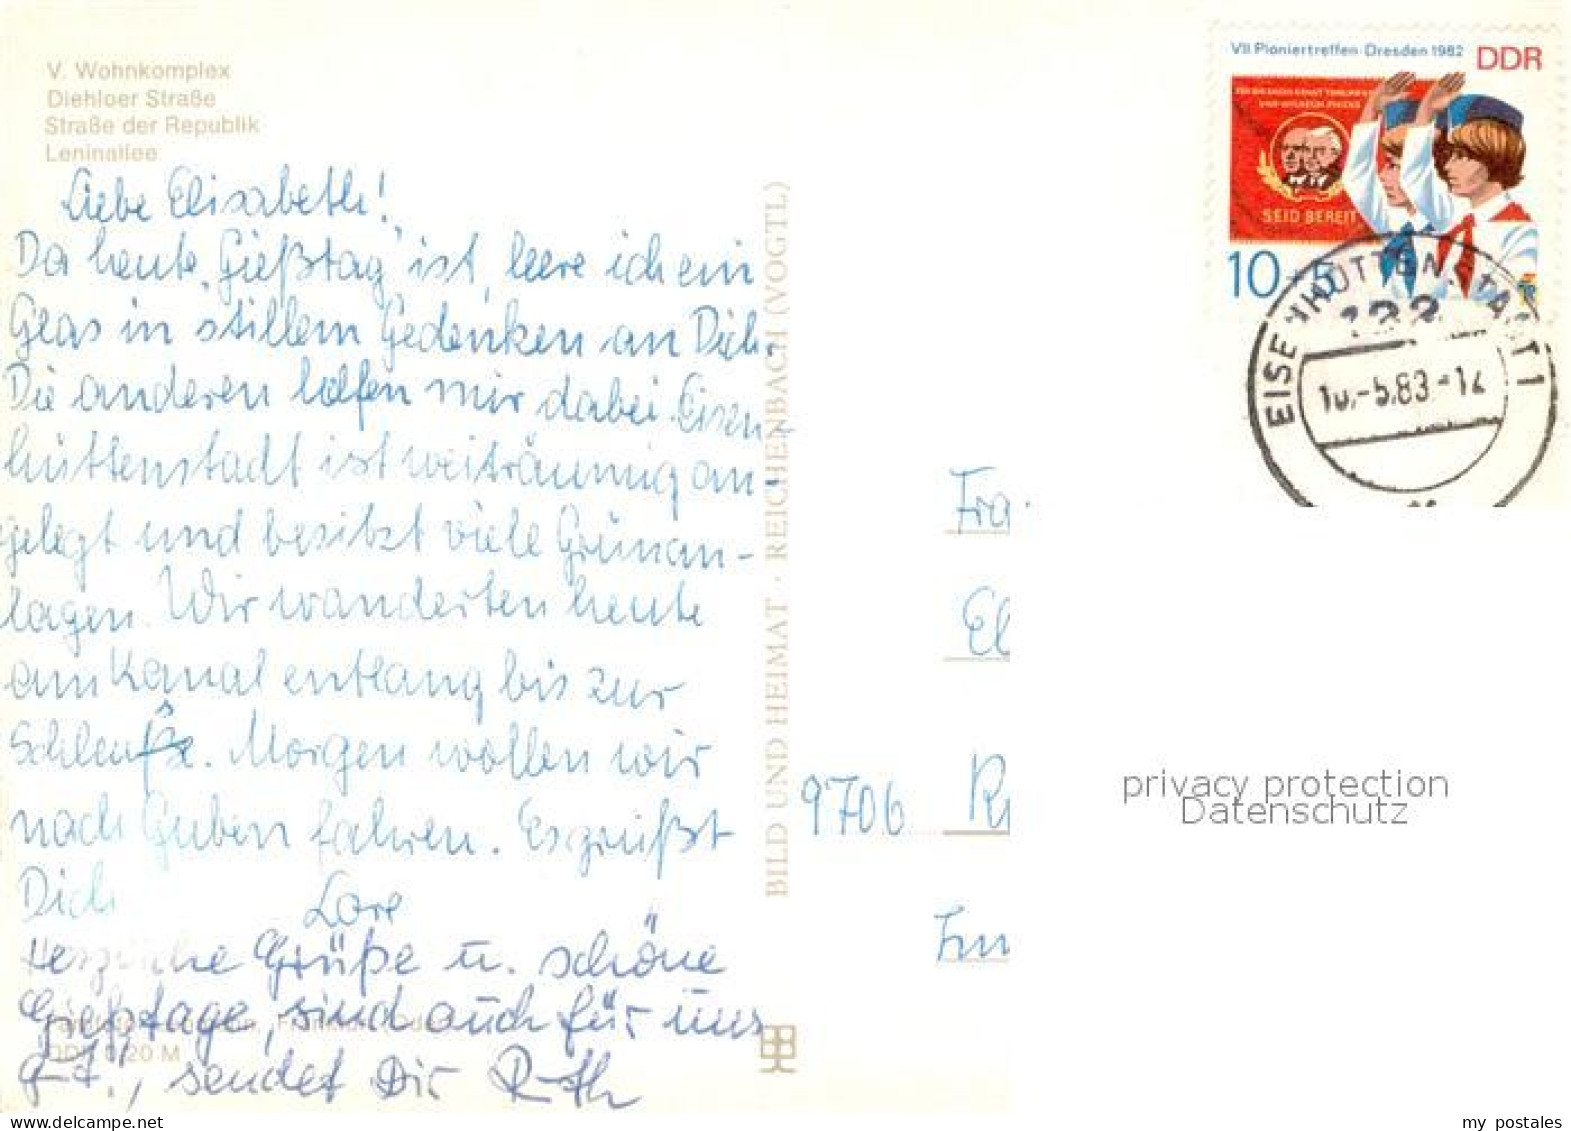 V. Wohnkomplex
Diehloer Straße
Straße der Republik
Leninallee
Liebe Elisabeth!
Da heute "Gießtag" ist, leere ich ein
Glas in stillem Gedenken an Dich.
Die anderen helfen mir dabei. Eisen-
hüttenstadt ist weiträumig an-
gelegt und besitzt viele Grünan-
lagen. Wir wanderten heute
am Kanal entlang bis zur
Schleuse. Morgen wollen wir
nach Guben fahren. Es grüßt
Dich Lore
Herzliche Grüße u. schöne
Gießtage, sind auch für uns
sendet Dir Ruth
DDR 0,20 M
BILD UND HEIMAT · REICHENBACH (VOGTL)
VII Pioniertreffen · Dresden 1982 DDR
SEID BEREIT
10+5
EISENHÜTTENSTADT 1
122
-5.83-12
Fra
El
9706 R
privacy protection
Datenschutz
www.delcampe.net
my_postales